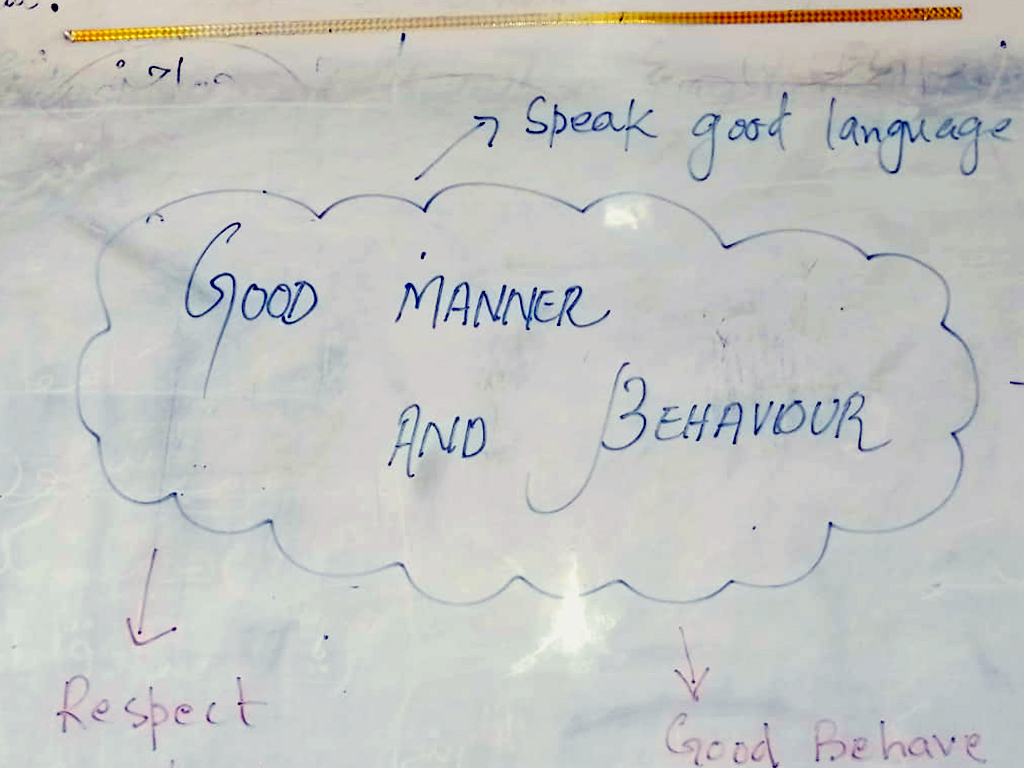 Speak good language
GOOD MANNER
AND BEHAVIOUR
Respect
Good Behave